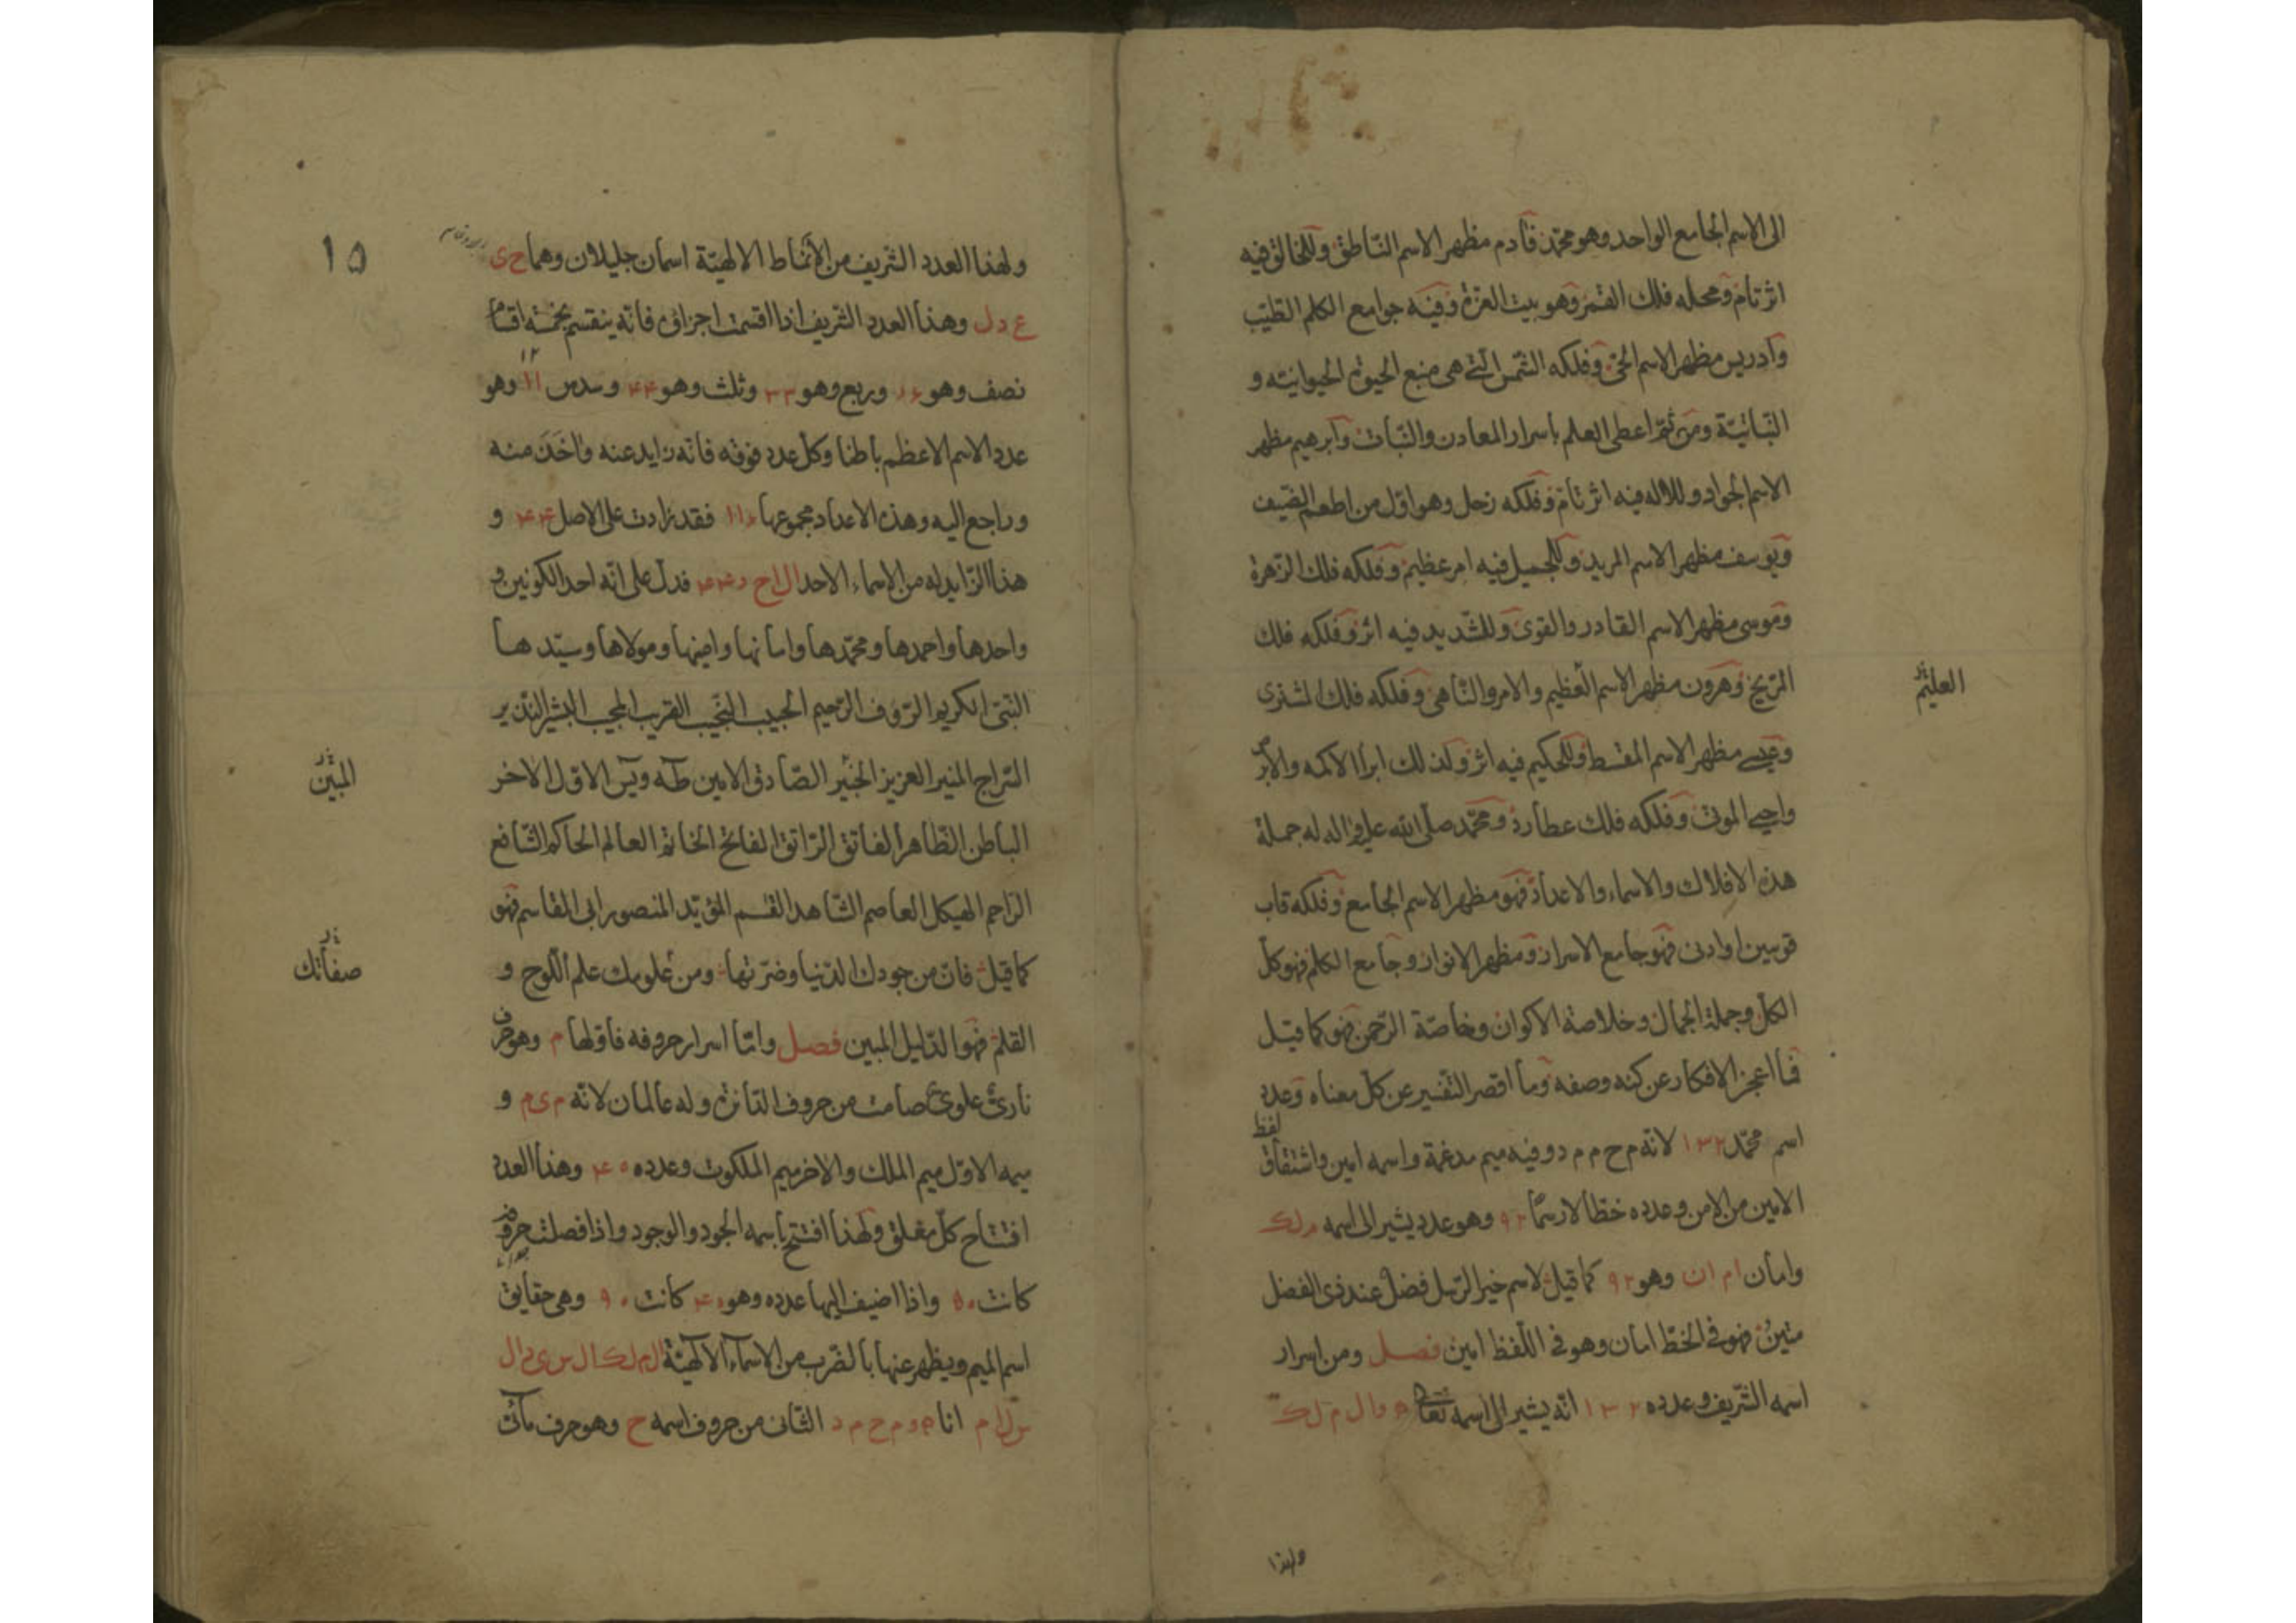 الى الاسم الجامع الواحد وهو محمد فآدم مظهر الاسم الناطق وللخالق فيه
اثر تام ومحله فلك القمر وهو بيت العزة وفيه جوامع الكلم الطيب
وادريس مظهر الاسم الحى وفلكه الشمس التى هى منبع الحيوة الحيوانيته و
النباتية ومن ثم اعطى العلم باسرار المعادن والنبات وابرهيم مظهر
الاسم الجواد وللاله فيه اثر تام وفلكه زحل وهو اول من اطعم الضيف
ويوسف مظهر الاسم المريد وللجميل فيه امر عظيم وفلكه فلك الزهرة
وموسى مظهر الاسم القادر والقوى وللشديد فيه اثر وفلكه فلك
المريخ وهرون مظهر الاسم العظيم والامر والناهى وفلكه فلك المشترى
العليم
وعيسى مظهر الاسم المقسط وللحكيم فيه اثر ولذلك ابرأ الاكمه والابرص
واحيى الموتى وفلكه فلك عطارد ومحمد صلى الله عليه واله له جملة
هذه الافلاك والاسماء والاعداد فهو مظهر الاسم الجامع وفلكه قاب
قوسين او ادنى فهو جامع الاسرار ومظهر الانوار وجامع الكلم فهو كل
الكل وجملة الجمال وخلاصة الاكوان وخاصة الرحمن فهو كما قيل
فما اعجز الافكار عن كنه وصفه وما اقصر التفسير عن كل معناه وعدد
اسم محمد ١٣٢ لانه م ح م م د وفيه ميم مدغمة واسمه امين واشتقاق لفظ
الامين من الامن وعدده خطا لا رسما ٩٢ وهو عدد يشير الى اسمه م ل ك
وامان ا م ا ن وهو ٩٢ كما قيل لاسم خير الرسل فضل عند ذى الفضل
متين فهو فى الخط امان وهو فى اللفظ امين فصل ومن اسرار
اسمه الشريف وعدده ١٣٢ انه يشير الى اسمه تعالى ه و ا ل م ل ك
ولهذا
١٥
ولهذا العدد الشريف من الانماط الالهية اسمان جليلان وهما ح ى
ع د ل وهذا العدد الشريف اذا اقسمت اجزاؤه فانه ينقسم بخمسة اقسام
نصف وهو ٦٦ وربع وهو ٣٣ وثلث وهو ٤٤ وسدس ١١ وهو
١٢
عدد الاسم الاعظم باطنا وكل عدد فوقه فانه زايد عنه واخذ منه
وراجع اليه وهذه الاعداد مجموعها فقد زادت على الاصل و
هذا الزايد له من الاسماء الاحد ا ل ا ح د فدل على انه احد الكونين و
واحدها واحمدها ومحمدها وامانها وامينها ومولاها وسيدها
النبى الكريم الرؤف الرحيم الحبيب النجيب القريب المجيب البشير النذير
السراج المنير العزيز الخبير الصادق الامين طه ويس الاول الاخر
المبين
الباطن الظاهر الفاتق الراتق الفاتح الخاتم العالم الحاكم الشافع
الراحم الهيكل العاصم الشاهد القسم المؤيد المنصور ابى القاسم فهو
صفاتك
كما قيل فان من جودك الدنيا وضرتها ومن علومك علم اللوح و
القلم فهو الدليل المبين فصل واما اسرار حروفه فاولها م وهو حرف
نارى علوى صامت من حروف النانزه وله عالمان لانه م ى م و
ميمه الاول ميم الملك والاخر ميم الملكوت وعدده وهذا العدد
افتتاح كل مغلق ولهذا افتتح باسمه الجود والوجود واذا فصلت حروفه
كانت ٥٠ واذا اضيف اليها عدده وهو ٤٠ كانت ٩٠ وهى حقايق
اسم الميم ويظهر عنها بالضرب من الاسماء الالهية ا ل م ل ك ا ل س ى د ا ل
س ل ا م انا ه و م ح م د الثانى من حروف اسمه ح وهو حرف مائى